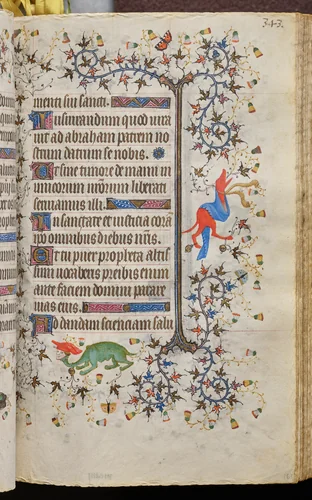 343
menti sui sancti.
Jusiurandum quod iura
uit ad abraham patrem no
strum daturum se nobis.
Ut sine timore de manu in
imicorum nr̄orum liberati
seruiamus illi.
In sanctitate et iusticia corā
ipo omnibus diebus nr̄is.
Et tu puer propheta altis
simi uocaberis preibis enim
ante faciem domini parare
uias eius.
Ad dandam scienciam salu